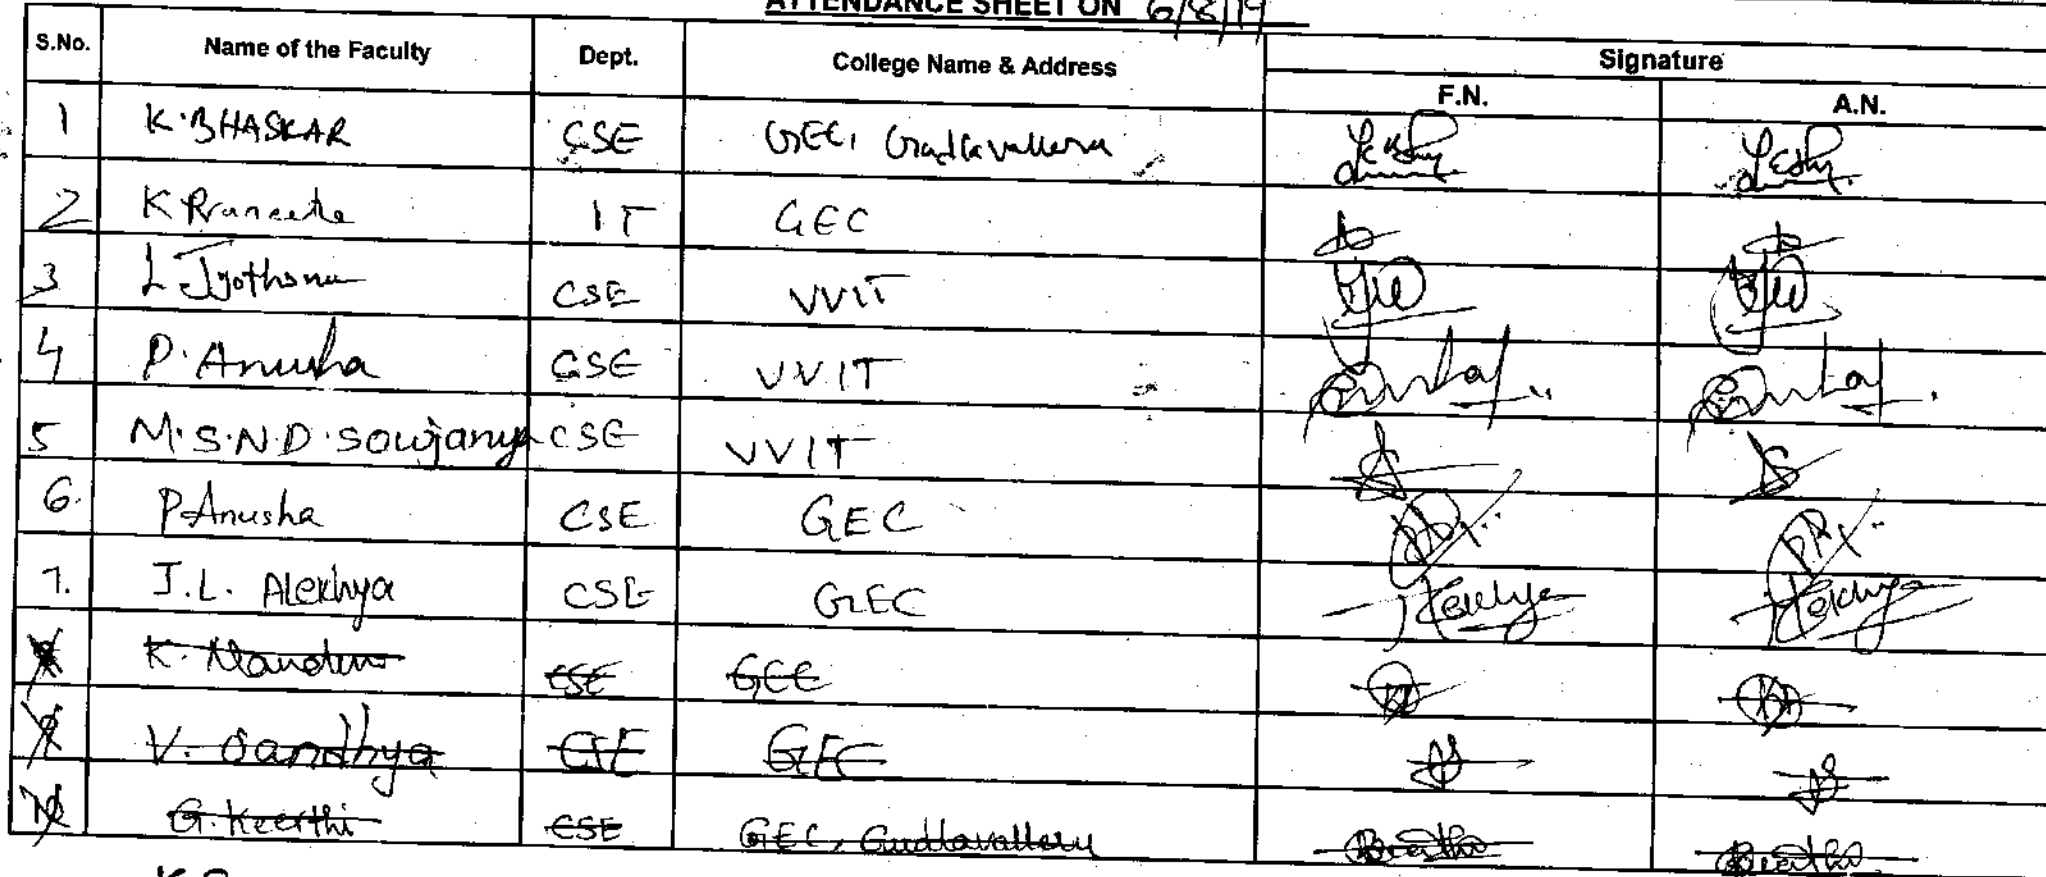 ATTENDANCE SHEET ON 6/8/19
S.No. Name of the Faculty Dept. College Name & Address Signature
F.N. A.N.
1 K.BHASKAR CSE GEC, Gudlavalleru
2 K Praneetha IT GEC
3 L Jyothsna CSE VVIT
4 P. Anusha CSE VVIT
5 M.S.N.D.Sowjanya CSE VVIT
6. P.Anusha CSE GEC
7. J.L. Alekhya CSE GEC Alekhya Alekhya
K. CSE GEC
V. Sandhya CSE GEC
10 G.Keerthi CSE GEC, Gudlavalleru